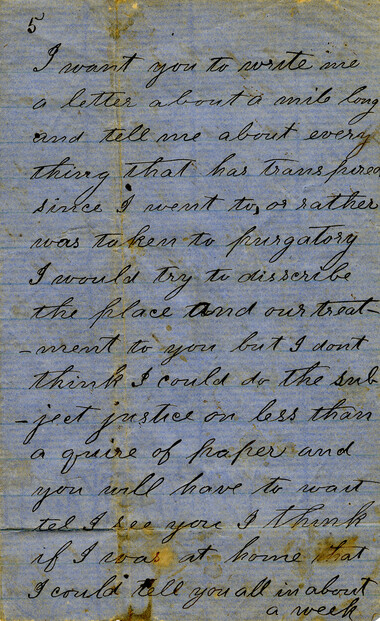 5
I want you to write me
a letter about a mile long
and tell me about every
thing that has transpired
since I went to, or rather
was taken to purgatory
I would try to disscribe
the place and our treat-
-ment to you but I dont
think I could do the sub
-ject justice on less than
a quire of paper and
you will have to wait
tel I see you I think
if I was at home that
I could tell you all in about
a week